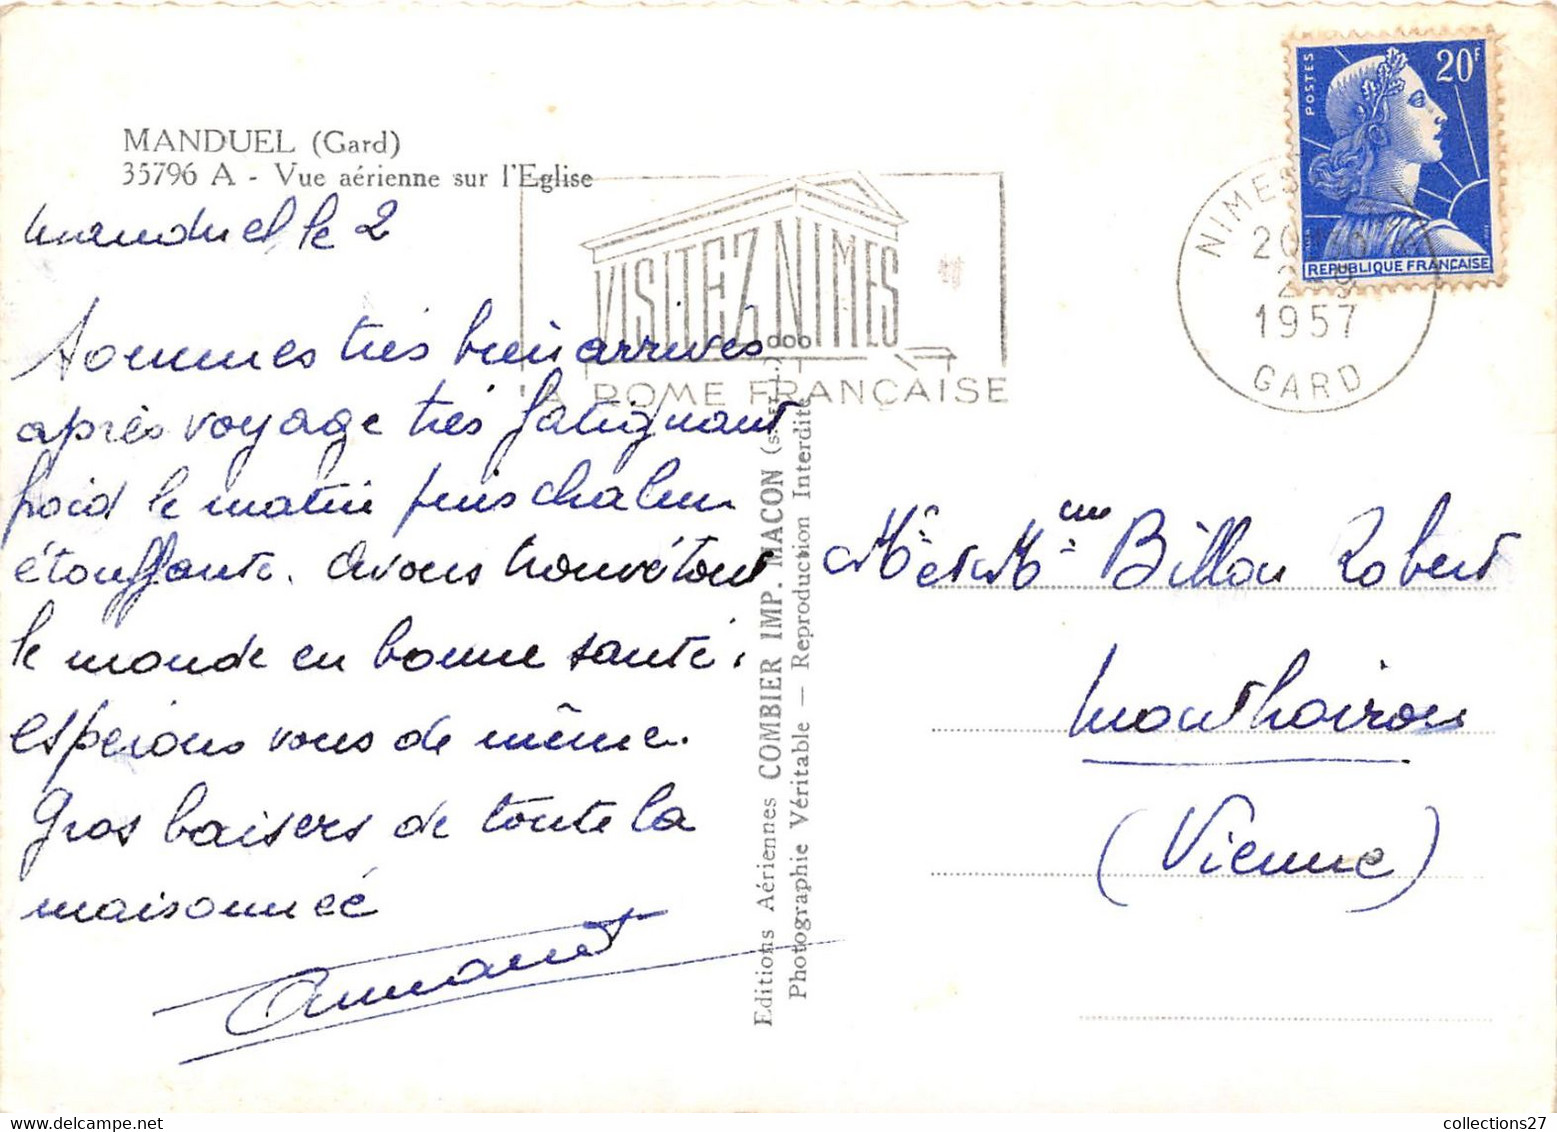 MANDUEL (Gard)
35796 A - Vue aérienne sur l'Eglise
Manduel, le 2
Sommes très bien arrivés
après voyage très fatiguant
froid le matin puis chaleur
étouffante. Avons trouvé tout
le monde en bonne santé,
espérons vous de même.
Gros baisers de toute la
maisonnée
Armand
VISITEZ NIMES
LA ROME FRANÇAISE
Editions Aériennes COMBIER IMP. MACON (S.A.R.L.)
Photographie Véritable — Reproduction Interdite
POSTES
20F
REPUBLIQUE FRANÇAISE
NIMES
1957
GARD
Mr et Mme Billon Robert
Monthoiron
(Vienne)
collections27